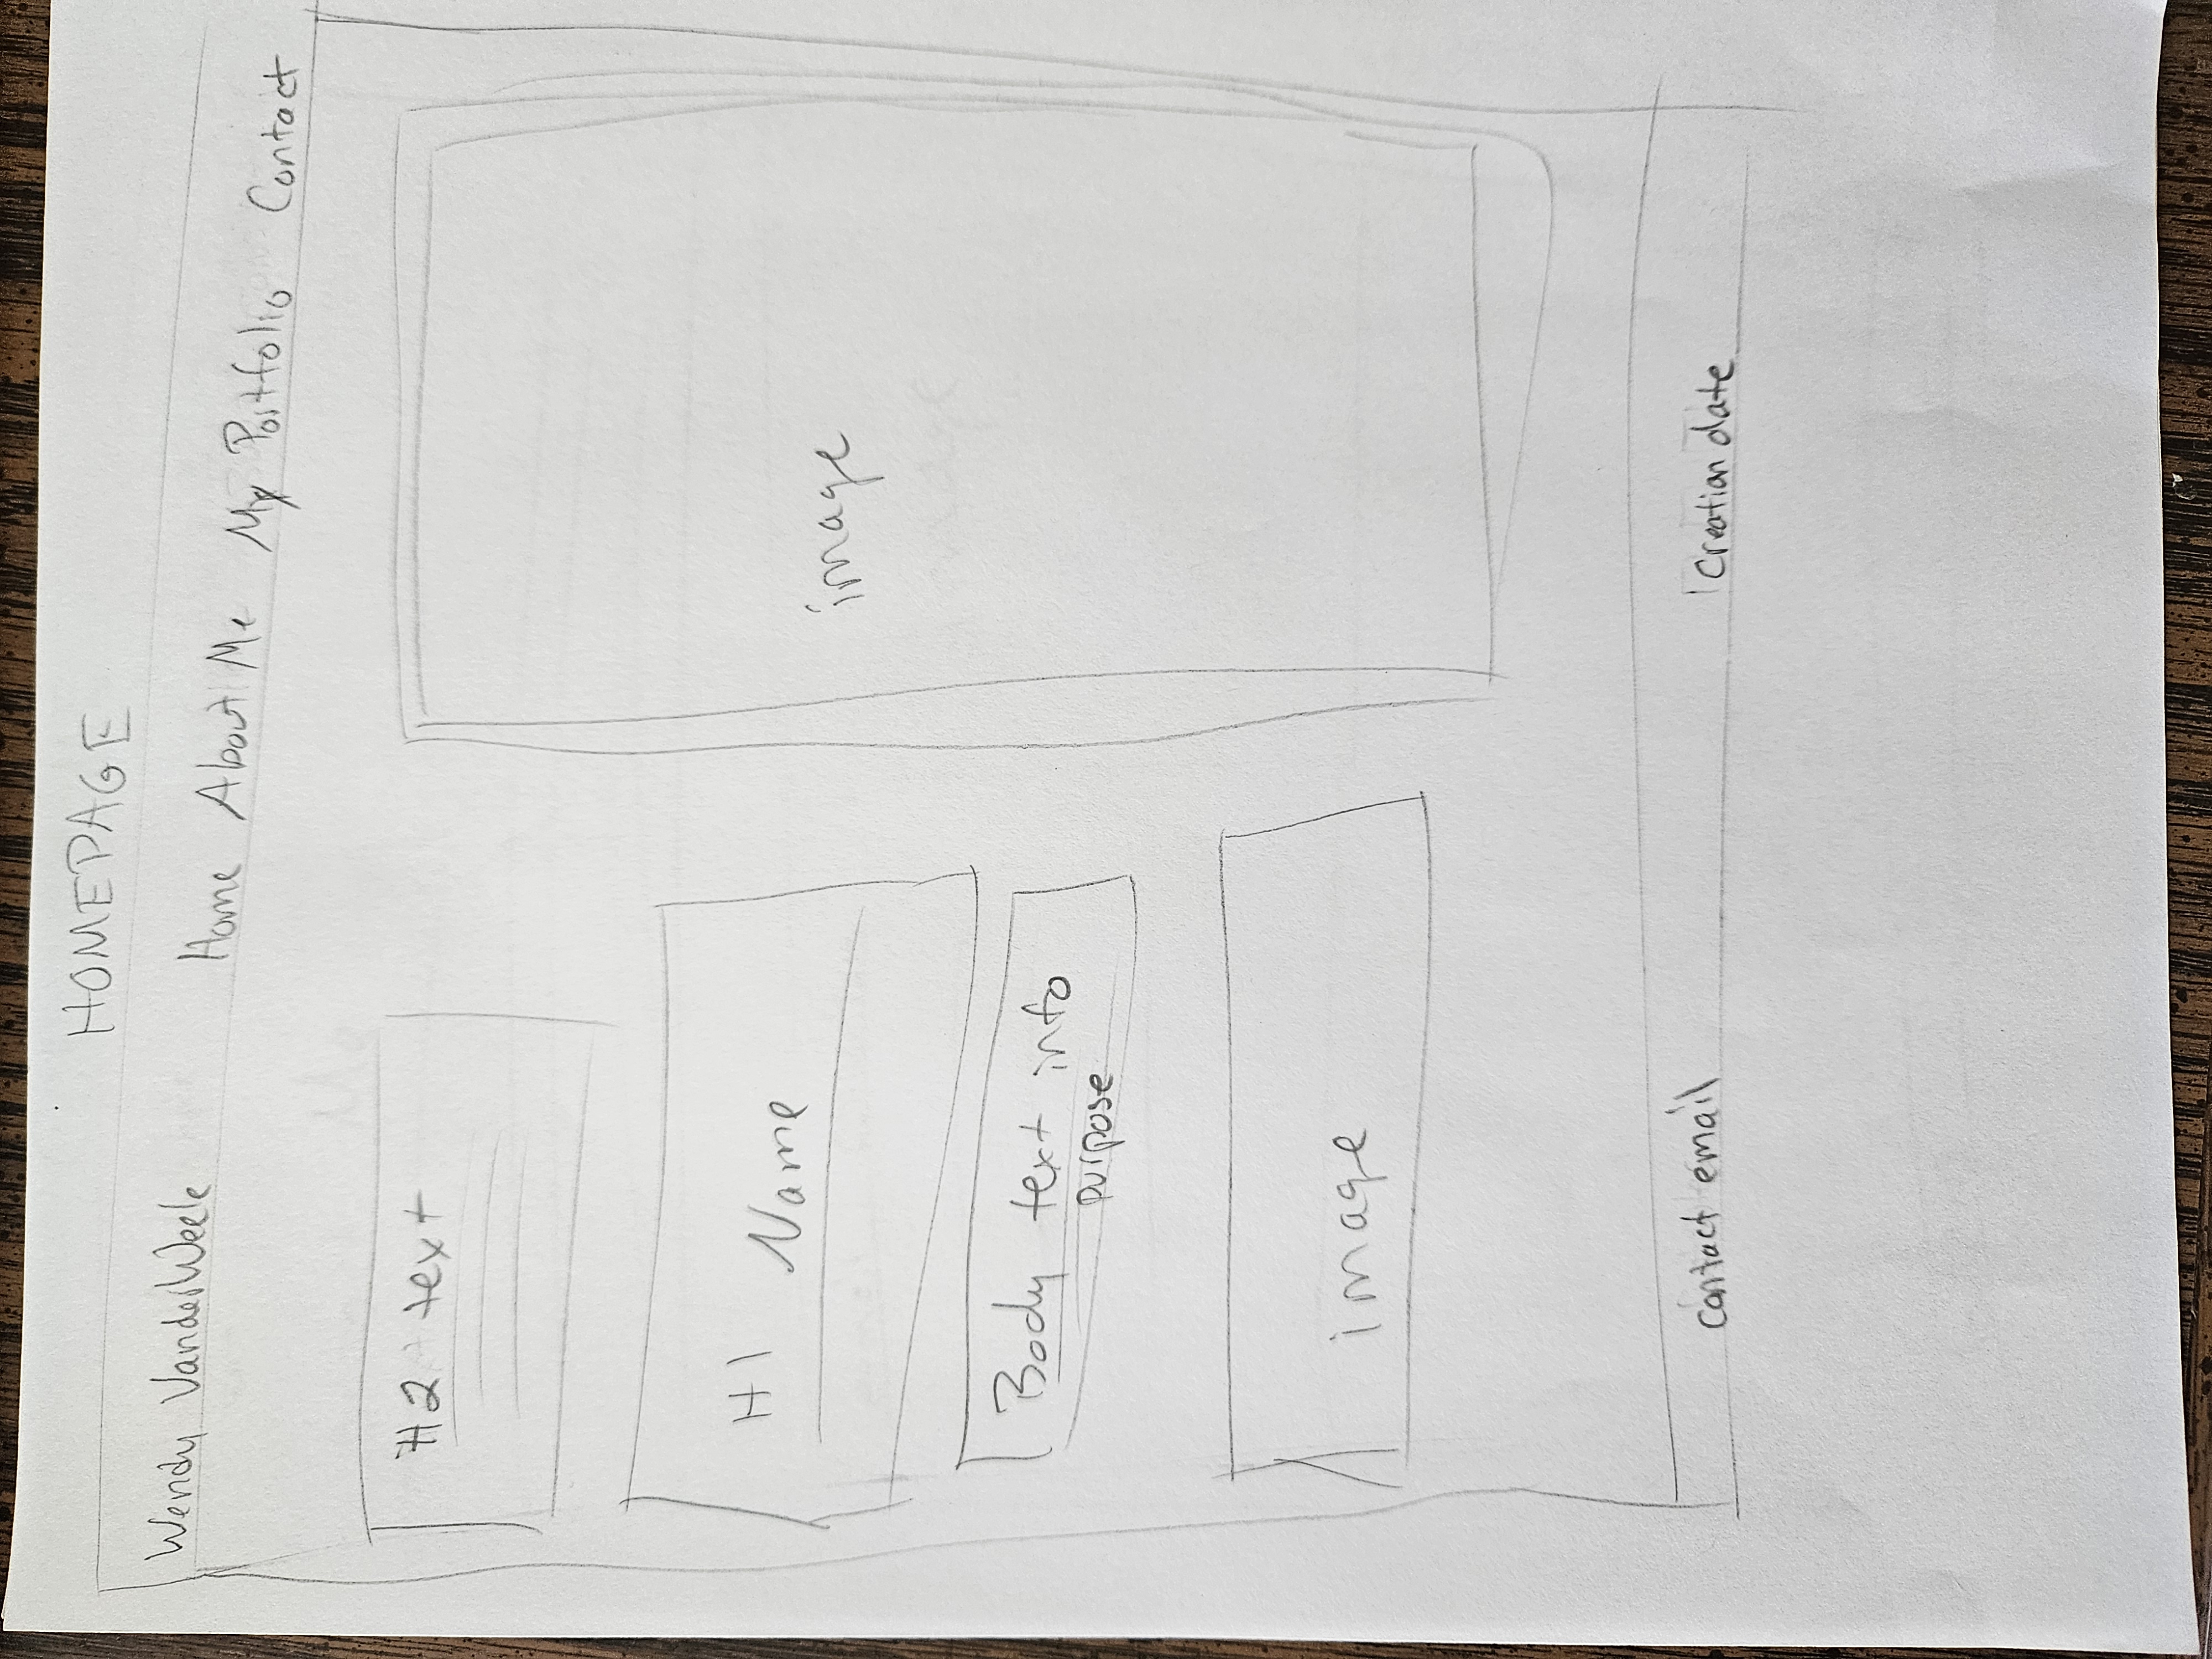 HOMEPAGE
Wendy VanderWeele Home About Me My Portfolio Contact
H2 text
H1 Name
image
Body text info
purpose
image
Contact email Creation date